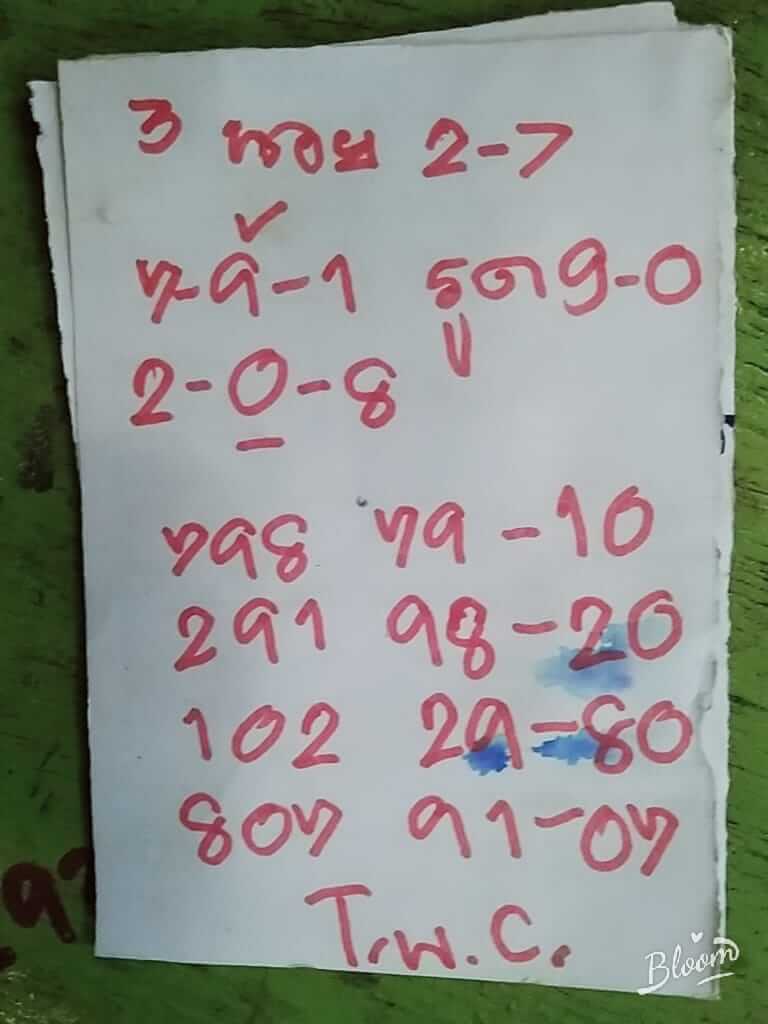 3 หอย 2->
7-9-1 รูด 9-0
2-0-8
798 79-10
291 98-20
102 29-80
807 91-07
T.พ.C.
Bloom